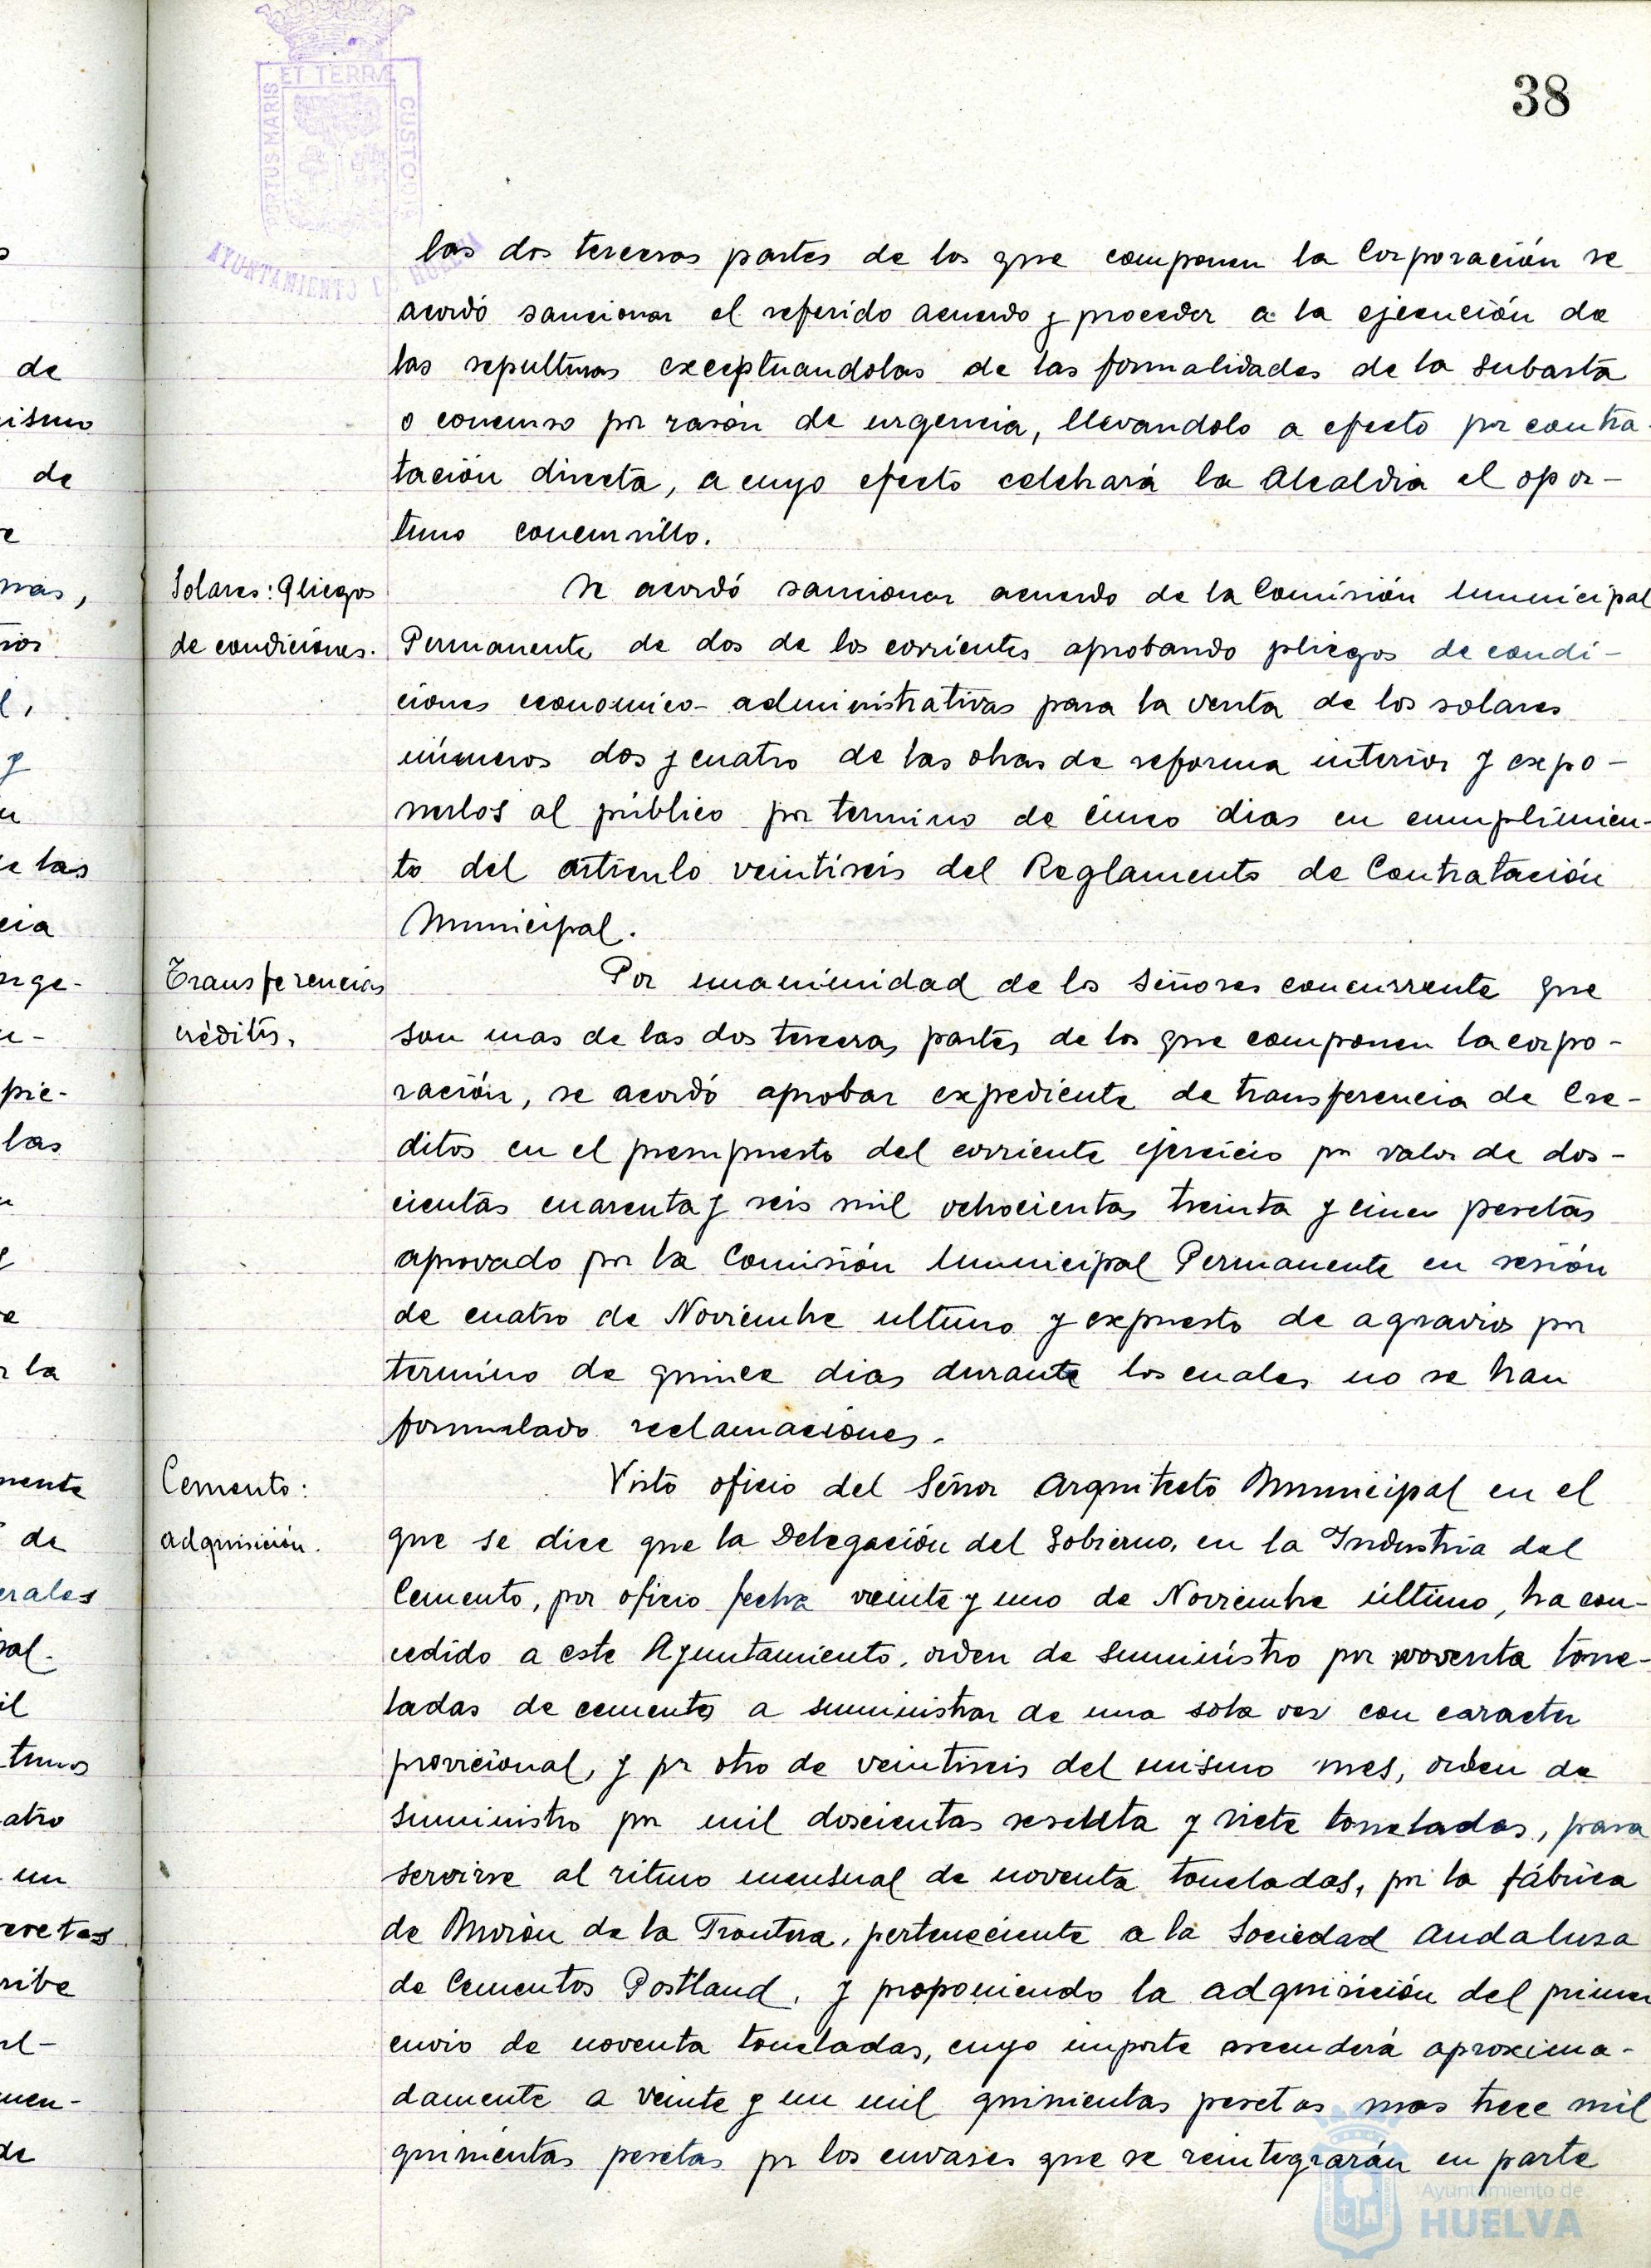 38
ET TERRÆ
PORTUS MARIS
CUSTODIA
AYUNTAMIENTO D HUELVA
las dos terceras partes de los que componen la Corporación se
acordó sancionar el referido acuerdo y proceder a la ejecución de
las sepulturas exceptuandolas de las formalidades de la subasta
o concurso por rasón de urgencia, llevandolo a efecto por contra-
tación directa, a cuyo efecto celebrará la Alcaldia el opor-
tuno concursillo.
Solares: Pliegos
de condiciones.
Se acordó sancionar acuerdo de la Comisión Municipal
Permanente de dos de los corrientes aprobando pliegos de condi-
ciones economico-administrativas para la venta de los solares
números dos y cuatro de las obras de reforma interior y expo-
nerlos al público por termino de cinco dias en cumplimien-
to del artículo veintiseis del Reglamento de Contratación
Municipal.
Transferencias
créditos.
Por unanimidad de los Señores concurrente que
son mas de las dos terceras partes de los que componen la corpo-
ración, se acordó aprobar expediente de transferencia de Cre-
ditos en el presupuesto del corriente ejercicio por valor de dos-
cientas cuarenta y seis mil ochocientas treinta y cinco pesetas
aprovado por la Comisión Municipal Permanente en sesión
de cuatro de Noviembre ultimo y expuesto de agravios por
termino de quince dias durante los cuales no se han
formulado reclamaciones.
Cemento:
adquisición.
Visto oficio del Señor Arquitecto Municipal en el
que se dice que la Delegación del Gobierno, en la Industria del
Cemento, por oficio fecha veinte y uno de Noviembre último, ha con-
cedido a este Ayuntamiento, orden de suministro por noventa tone-
ladas de cemento a suministrar de una sola ves con caracter
provicional, y por otro de veintiseis del mismo mes, orden de
suministro por mil doscientas sesenta y siete toneladas, para
servirse al ritmo mensual de noventa toneladas, por la fábrica
de Morón de la Frontera, perteneciente a la Sociedad Andalusa
de Cementos Postland, y proponiendo la adquisición del primer
envio de noventa toneladas, cuyo importe ascenderá aproxima-
damente a veinte y un mil quinientas pesetas mas trece mil
quinientas pesetas por los envases que se reintegrarán en parte
Ayuntamiento de
HUELVA